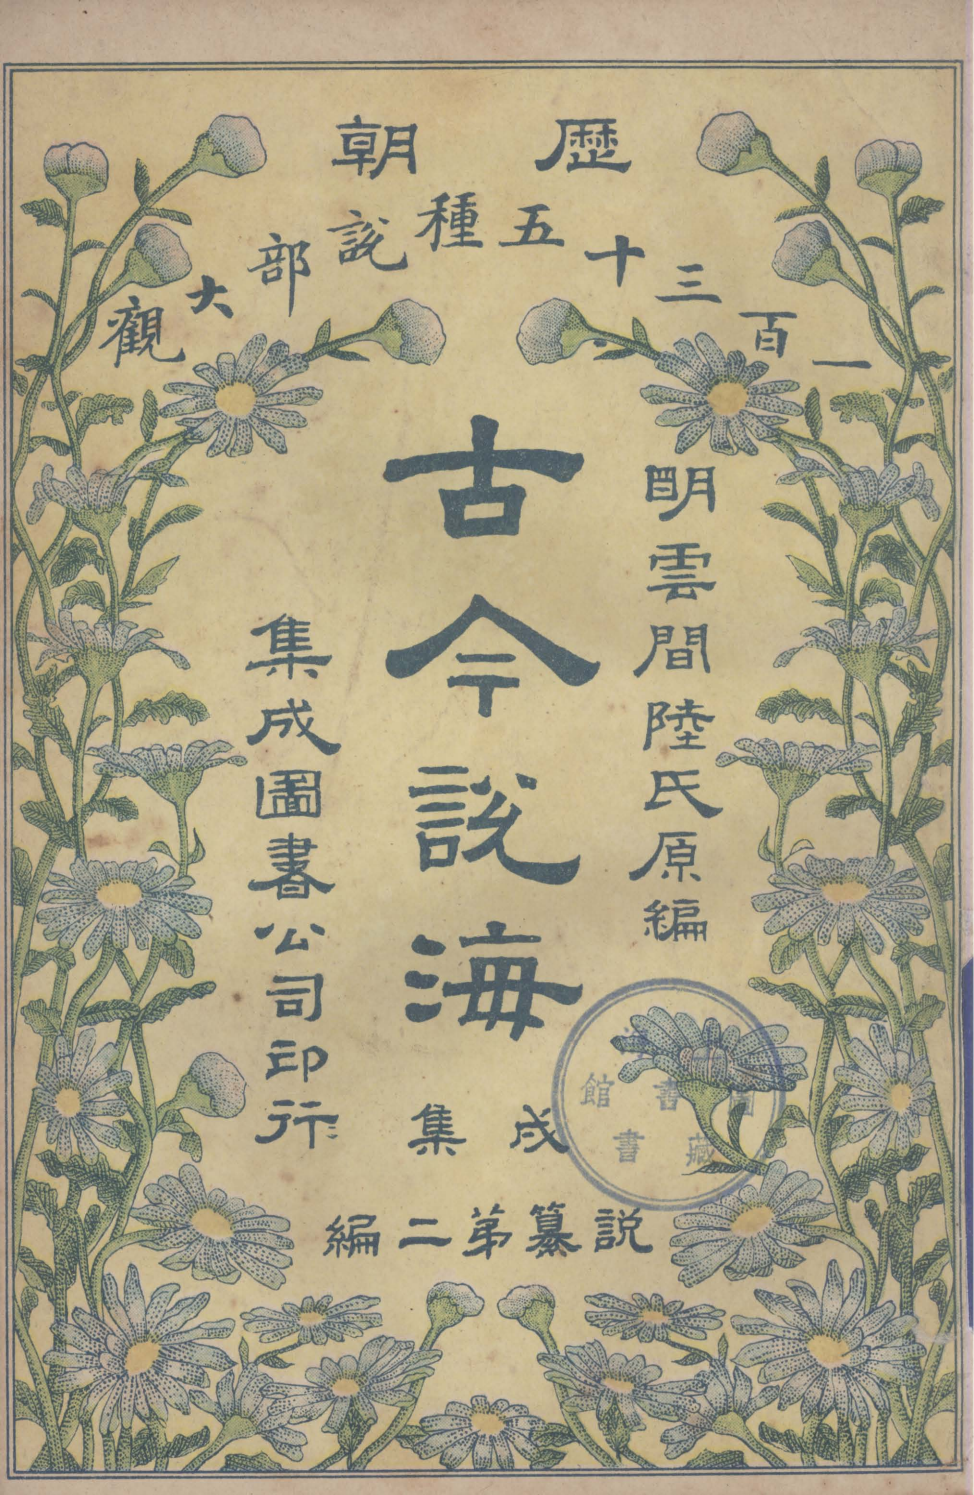 歷朝
一百三十五種說部大觀
明雲間陸氏原編
古今說海
集成圖書公司印行
戌集
說纂第二編
書館
藏書